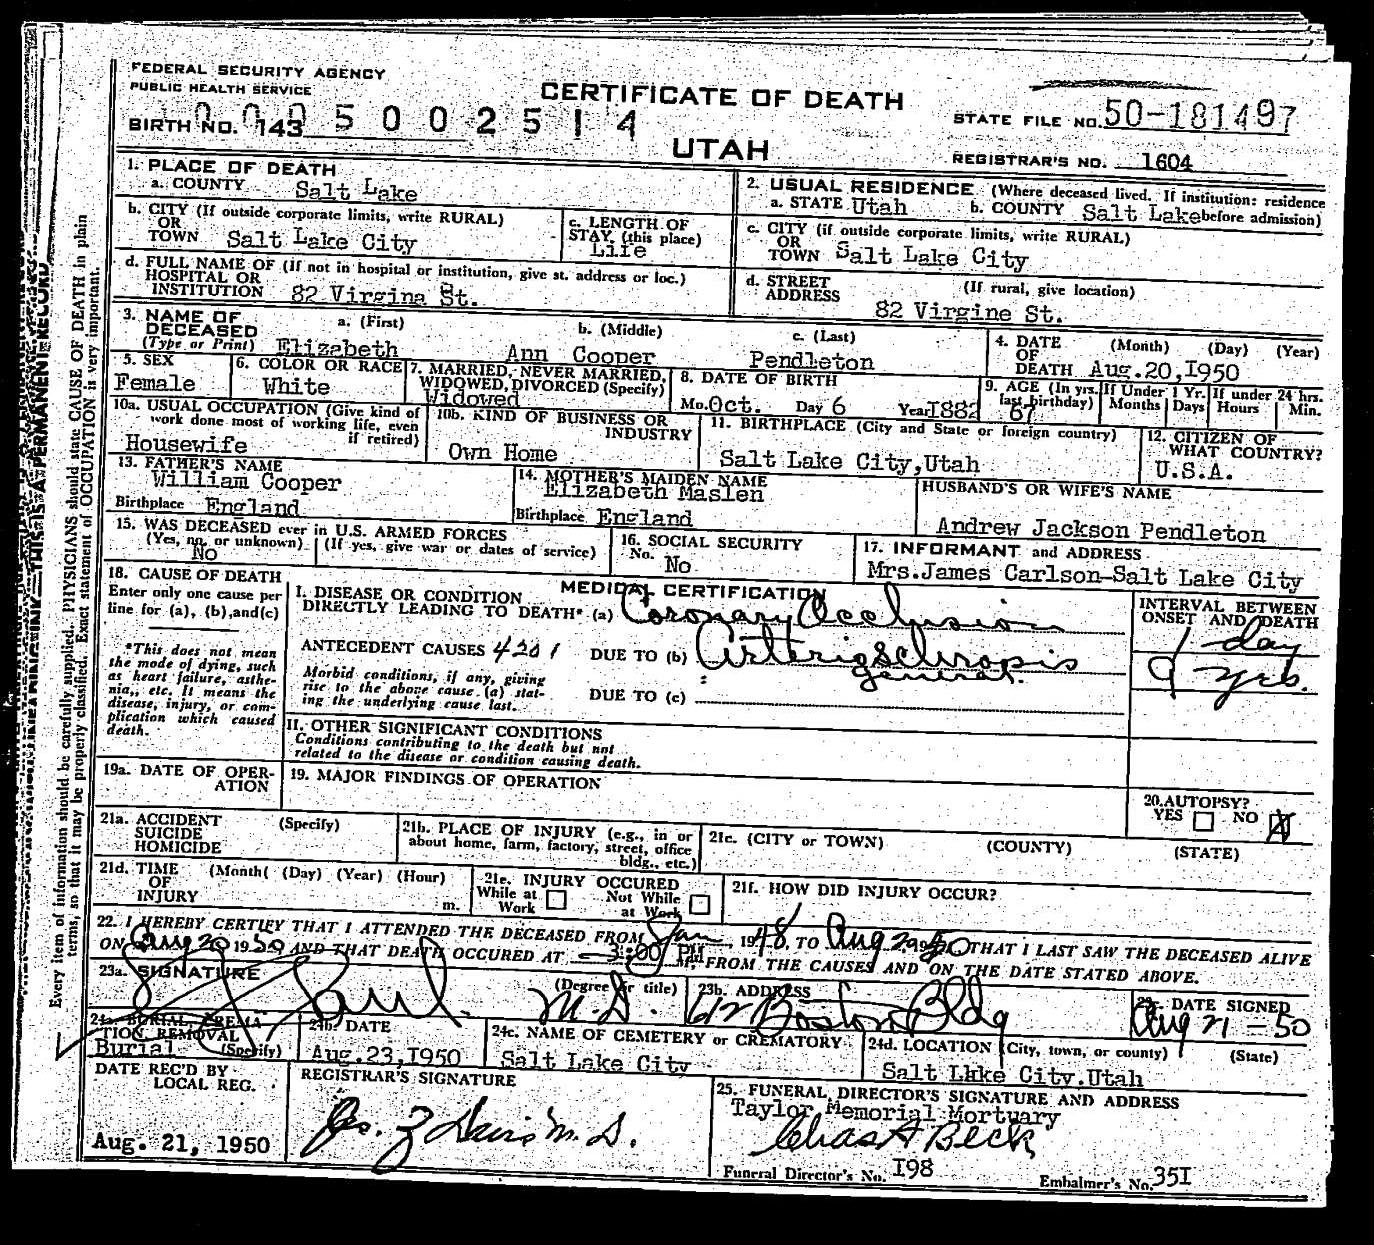 FEDERAL SECURITY AGENCY
PUBLIC HEALTH SERVICE
CERTIFICATE OF DEATH
UTAH
BIRTH NO. 143
0095002514
STATE FILE NO. 50-181497
REGISTRAR'S NO. 1604
1. PLACE OF DEATH
a. COUNTY Salt Lake
b. CITY (If outside corporate limits, write RURAL)
OR
TOWN Salt Lake City
c. LENGTH OF
STAY (this place)
Life
d. FULL NAME OF (if not in hospital or institution, give st. address or loc.)
HOSPITAL OR
INSTITUTION 82 Virgina St.
2. USUAL RESIDENCE (Where deceased lived. If institution: residence
a. STATE Utah b. COUNTY Salt Lake before admission)
c. CITY (if outside corporate limits, write RURAL)
OR
TOWN Salt Lake City
d. STREET (If rural, give location)
ADDRESS 82 Virgine St.
3. NAME OF
DECEASED
(Type or Print)
a. (First) b. (Middle) c. (Last)
Elizabeth Ann Cooper Pendleton
4. DATE (Month) (Day) (Year)
OF
DEATH Aug.20,1950
5. SEX
Female
6. COLOR OR RACE
White
7. MARRIED, NEVER MARRIED,
WIDOWED, DIVORCED (Specify)
Widowed
8. DATE OF BIRTH
Mo. Oct. Day 6 Year I882
9. AGE (In yrs. last birthday) 67
If Under 1 Yr. Months Days
If under 24 hrs. Hours Min.
10a. USUAL OCCUPATION (Give kind of
work done most of working life, even
if retired)
Housewife
10b. KIND OF BUSINESS OR
INDUSTRY
Own Home
11. BIRTHPLACE (City and State or foreign country)
Salt Lake City,Utah
12. CITIZEN OF
WHAT COUNTRY?
U.S.A.
13. FATHER'S NAME
William Cooper
Birthplace England
14. MOTHER'S MAIDEN NAME
Elizabeth Maslen
Birthplace England
HUSBAND'S OR WIFE'S NAME
Andrew Jackson Pendleton
15. WAS DECEASED ever in U.S. ARMED FORCES
(Yes, no, or unknown) (If yes, give war or dates of service)
No
16. SOCIAL SECURITY
No. No
17. INFORMANT and ADDRESS
Mrs.James Carlson-Salt Lake City
18. CAUSE OF DEATH
Enter only one cause per
line for (a), (b), and (c)
*This does not mean
the mode of dying, such
as heart failure, asthe-
nia, etc. It means the
disease, injury, or com-
plication which caused
death.
MEDICAL CERTIFICATION
I. DISEASE OR CONDITION
DIRECTLY LEADING TO DEATH* (a) Coronary Occlusion
ANTECEDENT CAUSES 4201 DUE TO (b) Arteriosclerosis
general.
Morbid conditions, if any, giving
rise to the above cause (a) stat-
ing the underlying cause last.
DUE TO (c)
INTERVAL BETWEEN
ONSET AND DEATH
1 day
9 yrs.
II. OTHER SIGNIFICANT CONDITIONS
Conditions contributing to the death but not
related to the disease or condition causing death.
19a. DATE OF OPER-
ATION
19. MAJOR FINDINGS OF OPERATION
20. AUTOPSY?
YES NO X
21a. ACCIDENT (Specify)
SUICIDE
HOMICIDE
21b. PLACE OF INJURY (e.g., in or
about home, farm, factory, street, office
bldg., etc.)
21c. (CITY or TOWN) (COUNTY) (STATE)
21d. TIME (Month( (Day) (Year) (Hour)
OF
INJURY m.
21e. INJURY OCCURED
While at Work Not While at Work
21f. HOW DID INJURY OCCUR?
22. I HEREBY CERTIFY THAT I ATTENDED THE DECEASED FROM Jan, 1948, TO Aug 20 1950 THAT I LAST SAW THE DECEASED ALIVE
ON Aug 20 1950 AND THAT DEATH OCCURED AT 3:00 PM M. FROM THE CAUSES AND ON THE DATE STATED ABOVE.
23a. SIGNATURE (Degree or title)
Paul M.D.
23b. ADDRESS
612 Boston Bldg
23c. DATE SIGNED
Aug 21-50
24a. BURIAL, CREMA-
TION REMOVAL
(Specify)
Burial
24b. DATE
Aug.23,1950
24c. NAME OF CEMETERY or CREMATORY
Salt Lake City
24d. LOCATION (City, town, or county) (State)
Salt Lake City.Utah
DATE REC'D BY
LOCAL REG.
Aug. 21, 1950
REGISTRAR'S SIGNATURE
Jos. Z Davis M.D.
25. FUNERAL DIRECTOR'S SIGNATURE AND ADDRESS
Taylor Memorial Mortuary
Chas A Beck
Funeral Director's No. I98
Embalmer's No. 35I
THIS IS A PERMANENT RECORD
Every item of information should be carefully supplied. PHYSICIANS should state CAUSE OF DEATH in plain
terms, so that it may be properly classified. Exact statement of OCCUPATION is very important.